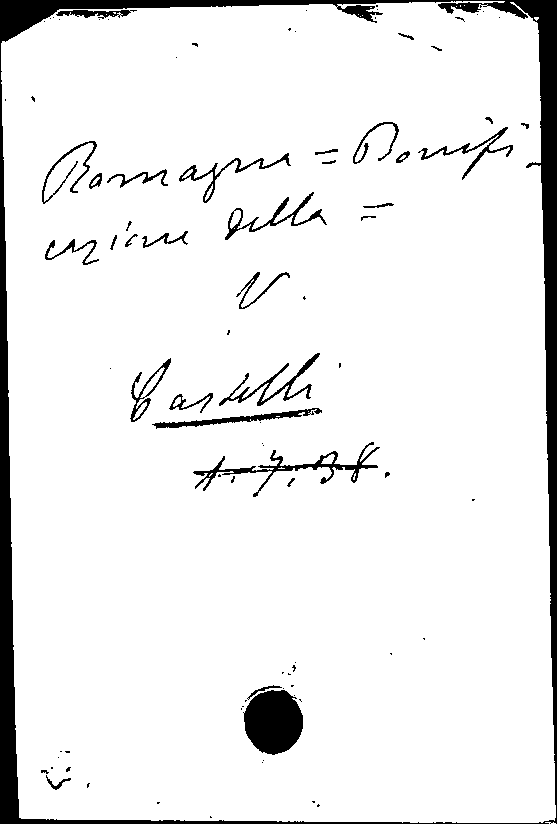 Romagna = Bonifi-
cazione della =
V.
Castelli
1.7.38.